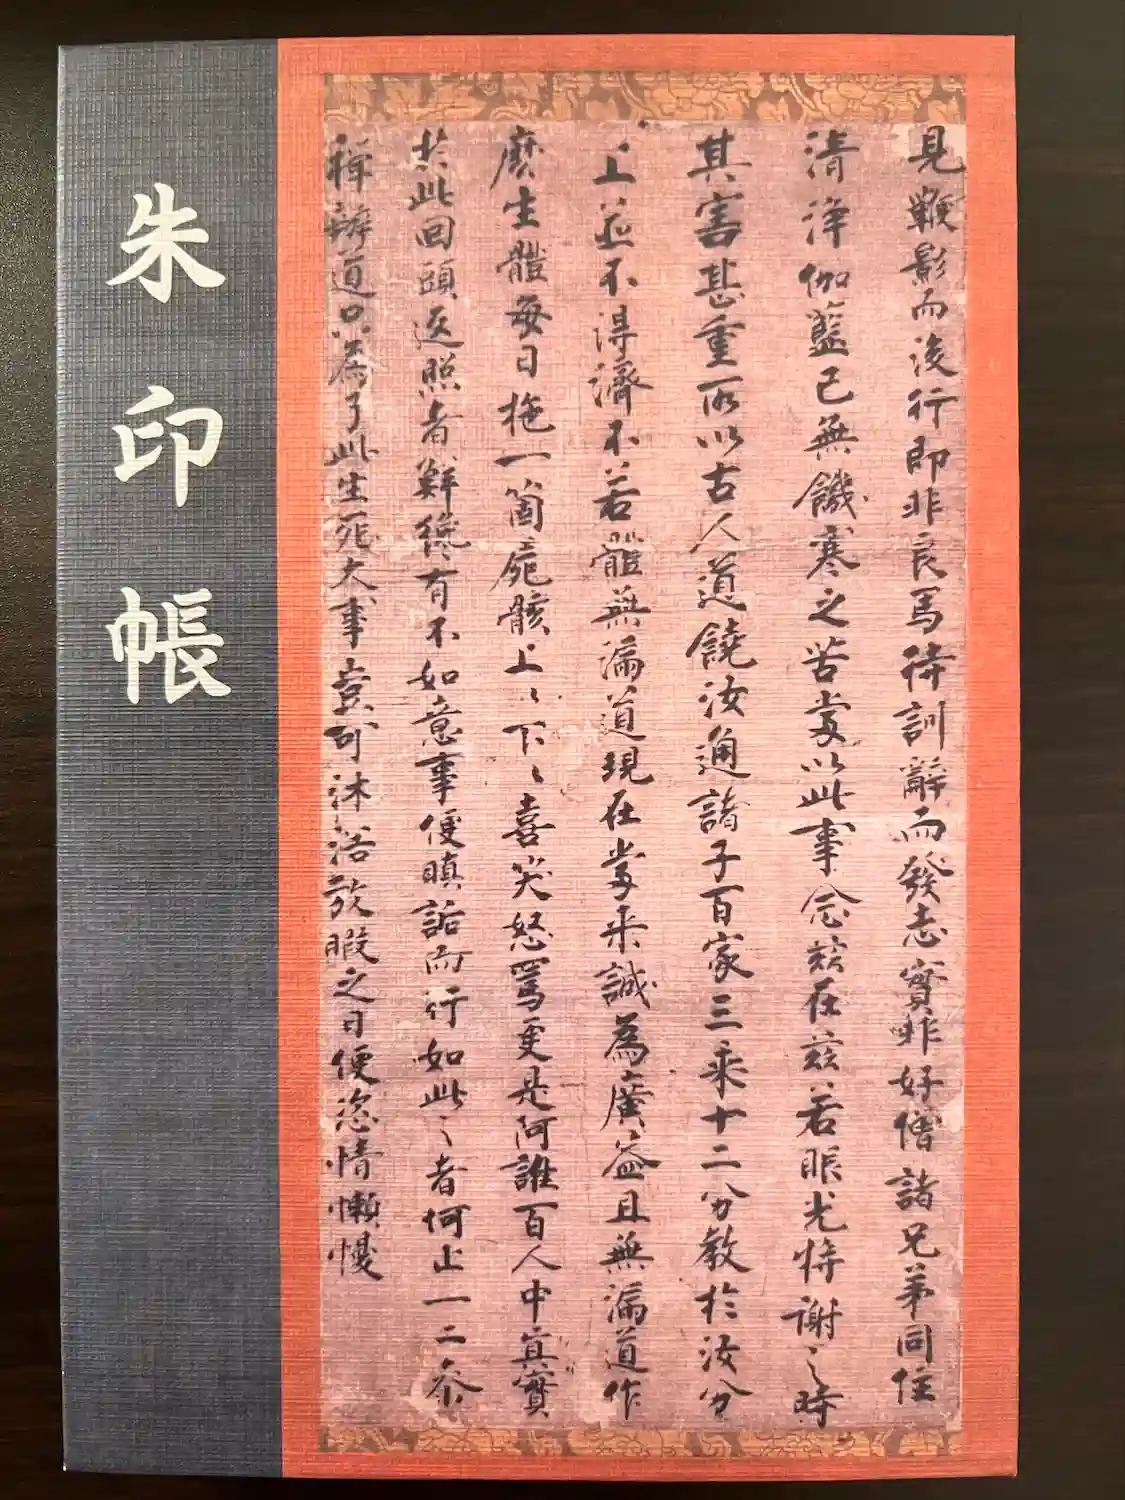 見鞭影而後行即非良馬待訓辭而發志實非好僧諸兄弟同住
清淨伽藍已無饑寒之苦當以此事念兹在兹若眼光將謝之時
其害甚重所以古人道饒汝通諸子百家三乘十二分教於汝分
上並不得濟不若體無漏道現在當来誠為廣益且無漏道作
麽生體每日拖一箇屍骸上〻下〻喜笑怒罵更是阿誰百人中眞實
於此回頭返照者鮮縱有不如意事便瞋詬而行如此〻者何止一二
稱辦道只為了此生死大事豈可沐浴放暇之日便恣情懶慢
朱印帳